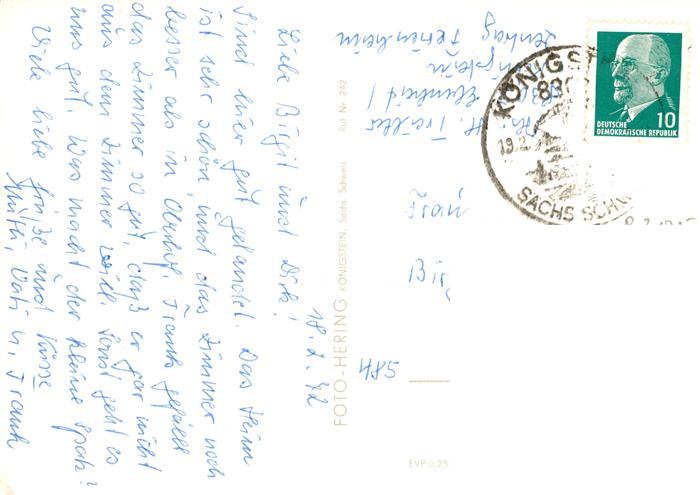 18.2.72
Liebe Birgit und Dirk!
Sind hier gut gelandet. Das Heim
ist sehr schön und das Zimmer noch
besser als in Oberhof. Frank gefällt
das Zimmer so gut, daß er gar nicht
aus dem Zimmer will. Sonst geht es
uns gut. Was macht der kleine Spatz?
Viele liebe Grüße und Küsse
Mutti, Vati u. Frank
FOTO-HERING KÖNIGSTEIN, Sächs. Schweiz Ruf Nr. 242
Abs. H.
8305
Ferienheim
485
EVP 0,25
KÖNIGST
830
19.2.
SÄCHS SCHW
10
DEUTSCHE
DEMOKRATISCHE REPUBLIK